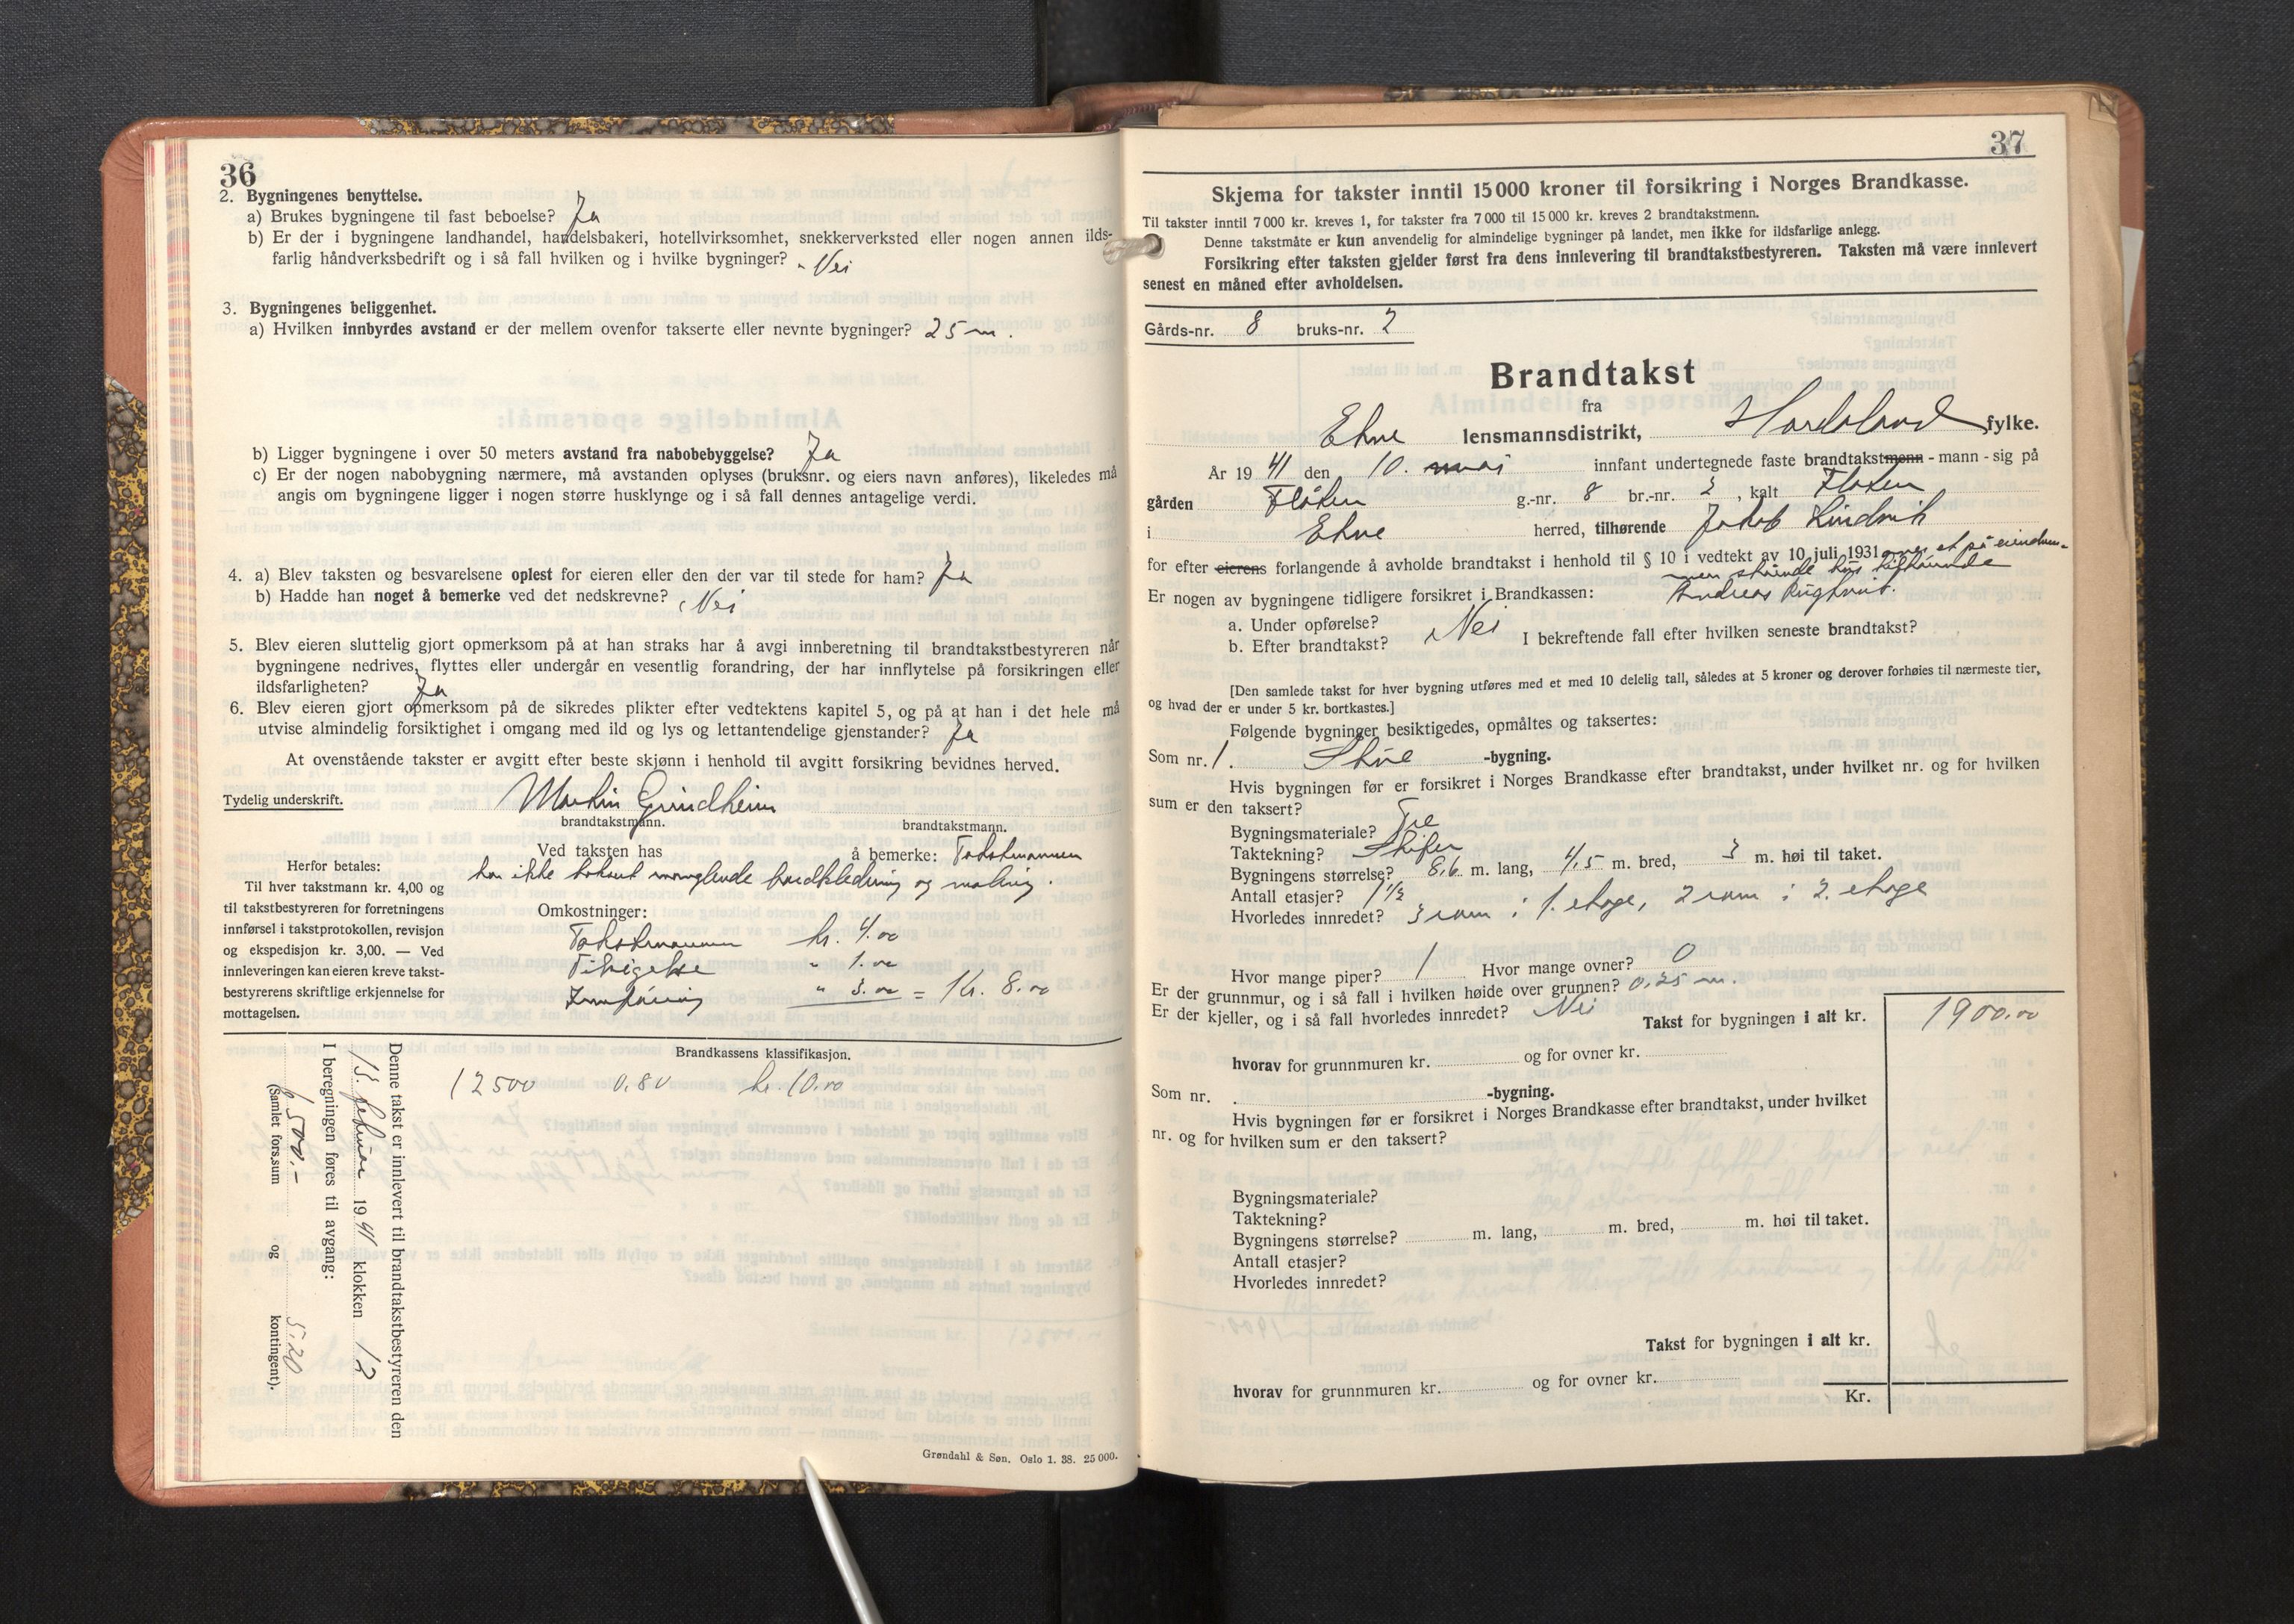 36
2. Bygningenes benyttelse.
a) Brukes bygningene til fast beboelse? Ja
b) Er der i bygningene landhandel, handelsbakeri, hotellvirksomhet, snekkerverksted eller nogen annen ilds-
farlig håndverksbedrift og i så fall hvilken og i hvilke bygninger? Nei
3. Bygningenes beliggenhet.
a) Hvilken innbyrdes avstand er der mellem ovenfor takserte eller nevnte bygninger? 25 m.
b) Ligger bygningene i over 50 meters avstand fra nabobebyggelse? Ja
c) Er der nogen nabobygning nærmere, må avstanden oplyses (bruksnr. og eiers navn anføres), likeledes må
angis om bygningene ligger i nogen større husklynge og i så fall dennes antagelige verdi.
4. a) Blev taksten og besvarelsene oplest for eieren eller den der var til stede for ham? Ja
b) Hadde han noget å bemerke ved det nedskrevne? Nei
5. Blev eieren sluttelig gjort opmerksom på at han straks har å avgi innberetning til brandtakstbestyreren når
bygningene nedrives, flyttes eller undergår en vesentlig forandring, der har innflytelse på forsikringen eller
ildsfarligheten? Ja
6. Blev eieren gjort opmerksom på de sikredes plikter efter vedtektens kapitel 5, og på at han i det hele må
utvise almindelig forsiktighet i omgang med ild og lys og lettantendelige gjenstander? Ja
At ovenstående takster er avgitt efter beste skjønn i henhold til avgitt forsikring bevidnes herved.
Tydelig underskrift. Martin Grindheim
brandtakstmann. brandtakstmann.
Ved taksten has å bemerke: Takstmannen
har ikke takseret manglende bordkledning og maling.
Herfor betales:
Til hver takstmann kr. 4,00 og
til takstbestyreren for forretningens
innførsel i takstprotokollen, revisjon
og ekspedisjon kr. 3,00. — Ved
innleveringen kan eieren kreve takst-
bestyrerens skriftlige erkjennelse for
mottagelsen.
Omkostninger:
Takstmannen kr. 4.00
" 1.00
Innføring " 3.00 = Kr. 8.00
Brandkassens klassifikasjon.
12500 0.80 kr. 10.00
Denne takst er innlevert til brandtakstbestyreren den
15. februar 1941 klokken 12
I beregningen føres til avgang:
6500.- og 5.20
(Samlet fors.sum kontingent).
Grøndahl & Søn. Oslo 1. 38. 25 000.
37
Skjema for takster inntil 15 000 kroner til forsikring i Norges Brandkasse.
Til takster inntil 7 000 kr. kreves 1, for takster fra 7 000 til 15 000 kr. kreves 2 brandtakstmenn.
Denne takstmåte er kun anvendelig for almindelige bygninger på landet, men ikke for ildsfarlige anlegg.
Forsikring efter taksten gjelder først fra dens innlevering til brandtakstbestyreren. Taksten må være innlevert
senest en måned efter avholdelsen.
Gårds-nr. 8 bruks-nr. 2
Brandtakst
fra
Etne lensmannsdistrikt, Hordaland fylke.
År 1941 den 10. mai innfant undertegnede faste brandtakstmenn - mann - sig på
gården Fløten g.-nr. 8 br.-nr. 2, kalt Fløten
i Etne herred, tilhørende Jakob Lindvik
for efter eierens forlangende å avholde brandtakst i henhold til § 10 i vedtekt av 10. juli 1931 over et på eiendom-
men stående hus tilhørende
Er nogen av bygningene tidligere forsikret i Brandkassen: Andreas
a. Under opførelse?
b. Efter brandtakst? Nei I bekreftende fall efter hvilken seneste brandtakst?
[Den samlede takst for hver bygning utføres med et med 10 delelig tall, således at 5 kroner og derover forhøies til nærmeste tier,
og hvad der er under 5 kr. bortkastes.]
Følgende bygninger besiktigedes, opmåltes og taksertes:
Som nr. 1. Stue -bygning.
Hvis bygningen før er forsikret i Norges Brandkasse efter brandtakst, under hvilket nr. og for hvilken
sum er den taksert?
Bygningsmateriale? Tre
Taktekning? Skifer
Bygningens størrelse? 8,6 m. lang, 4,5 m. bred, 3 m. høi til taket.
Antall etasjer? 1 1/2
Hvorledes innredet? 3 rom i 1. etage, 2 rom i 2. etage
Hvor mange piper? 1 Hvor mange ovner? 0
Er der grunnmur, og i så fall i hvilken høide over grunnen? 0,25 m.
Er der kjeller, og i så fall hvorledes innredet? Nei
Takst for bygningen i alt kr. 1900.00
hvorav for grunnmuren kr. og for ovner kr.
Som nr. . -bygning.
Hvis bygningen før er forsikret i Norges Brandkasse efter brandtakst, under hvilket
nr. og for hvilken sum er den taksert?
Bygningsmateriale?
Taktekning?
Bygningens størrelse? m. lang, m. bred, m. høi til taket.
Antall etasjer?
Hvorledes innredet?
Takst for bygningen i alt kr.
hvorav for grunnmuren kr. og for ovner kr.
Kr.